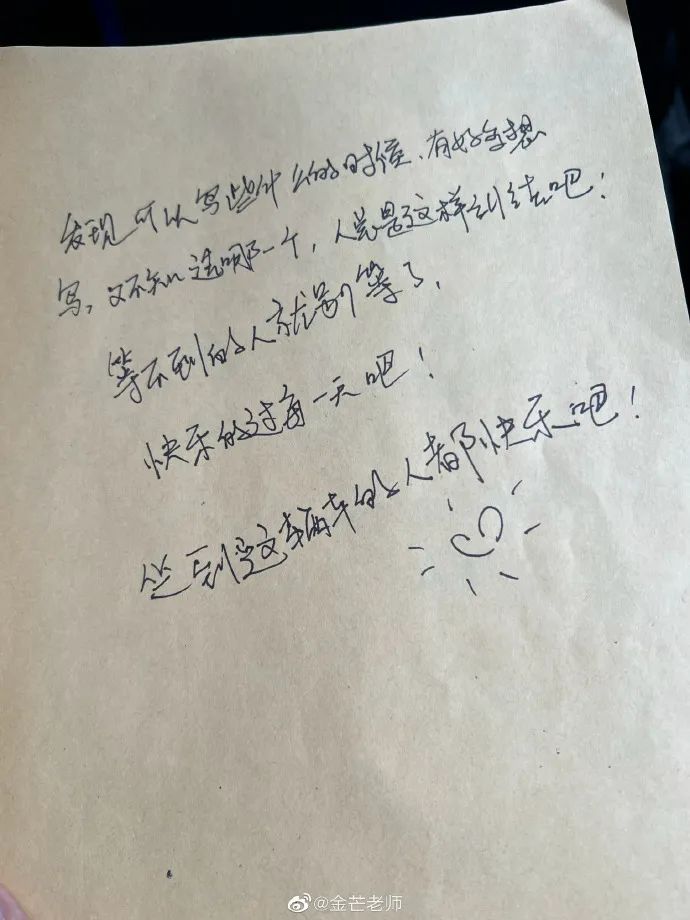 发现可以写些什么的时候、有好多想
写,又不知选哪一个,人总是这样纠结吧!
等不到的人就别等了、
快乐的过每一天吧!
坐到这辆车的人都快乐吧!
@金芒老师